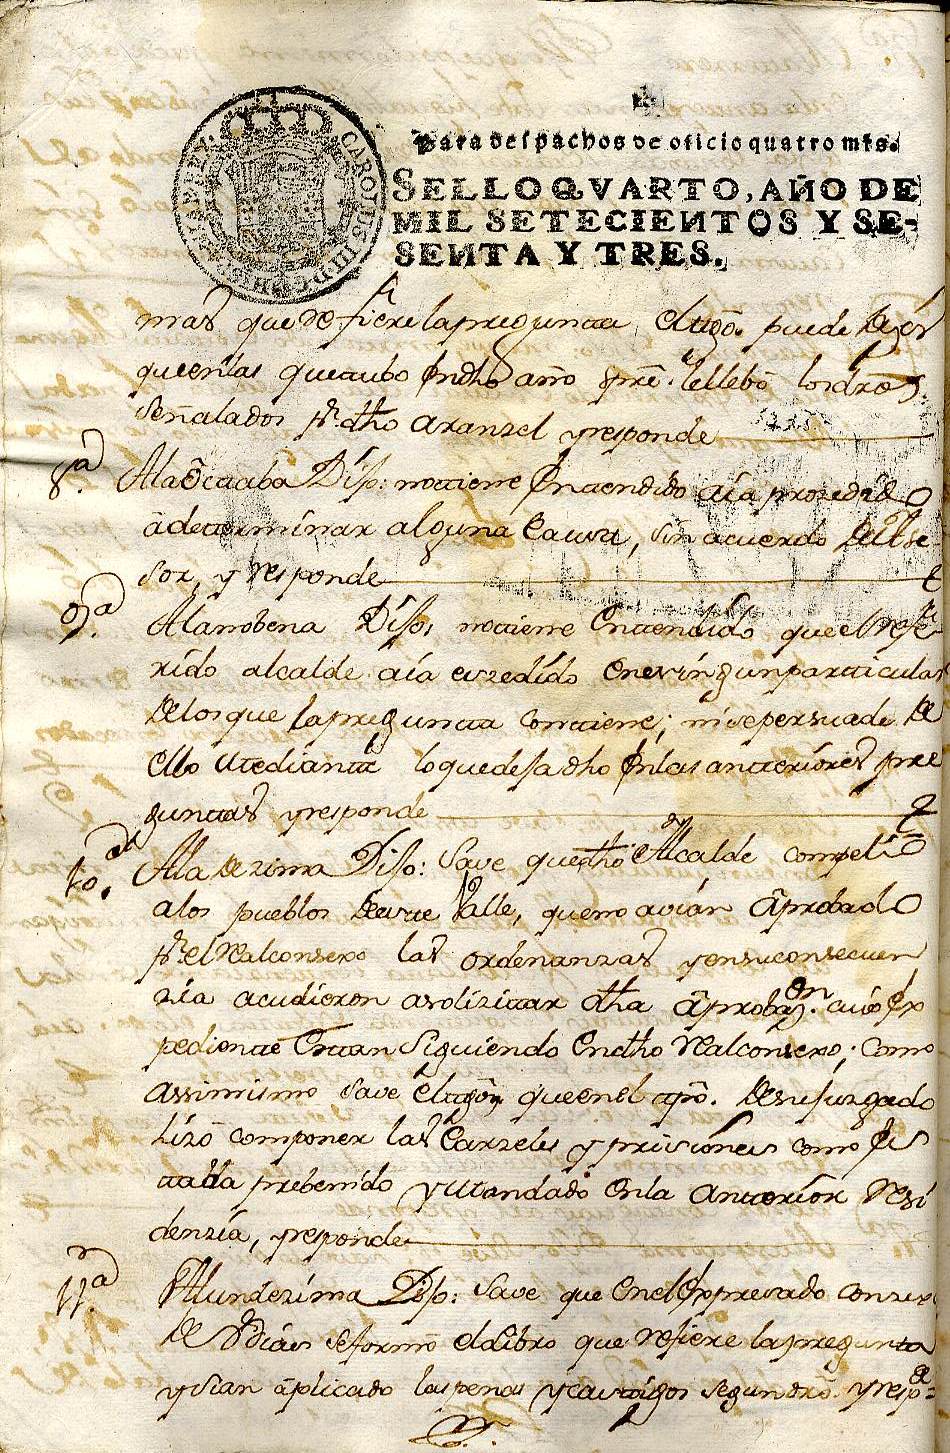 CAROLUS III D G HISPANIAR REX
Para despachos de oficio quatro mrs.
SELLO QVARTO, AÑO DE
MIL SETECIENTOS Y SE-
SENTA Y TRES.
mas, que refiere la pregunta el tgô. puede dezir
que en las que tubo en dho año sprê. le llebô los drôs
señalados pr. dho aranzel y responde
8ª. A la Octaba Dijo: no tiene entendido aia prozedido
a determinar alguna Causa, sin acuerdo de Asse
sor, y responde
9ª. A la nobena Dijo, no tiene entendido que el refe
rido alcalde aia exzedido en ningun particular
de los que la pregunta contiene; ni se persuade de
ello Mediante lo que deja dho en las anteriores pre
guntas y responde
10ª. A la dezima Dijo: Save que dho Alcalde compeliô
a los pueblos de este Valle, que no avian aprobado
pr. el Real Consexo las ordenanzas y en su consecuen
zia acudieron a solizitar dha aprobazon. cuio ex
pediente Estan Siguiendo en dho Real Consexo; como
assimismo save el tgô. que en el tpô. de su juzgado
hizo componer las Carzeles y prisiones como es
taba prebenido y Mandado en la Anterior Resi
denzia, y responde
11ª. A la undezima Dijo: Save que en el Expresado consexo
de se formô el Libro que refiere la pregunta
y se an aplicado las penas y castigos segun drô. y respde